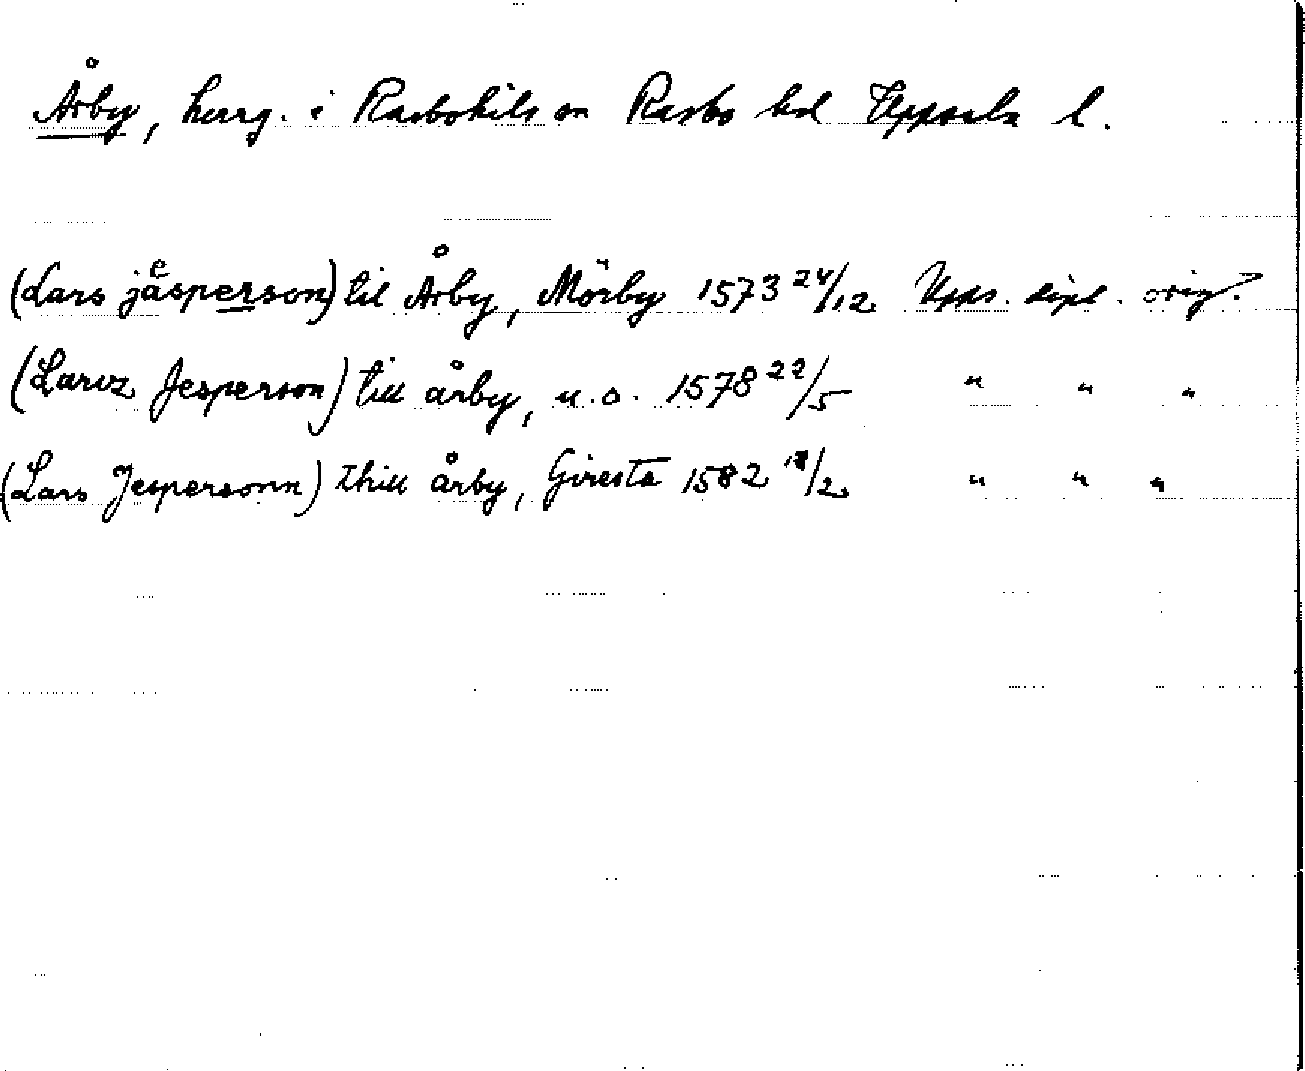 Årby, herrg. i Rasbokils sn Rasbo hd Uppsala l.
(Lars jaͤsperson) til Årby, Mörby 1573 24/12 Upps. dipl. orig.
(Larvz Jesperson) till årby, u.o. 1578 22/5 " " "
(Lars Jespersonn) thill årby, Giresta 1582 18/2 " " "